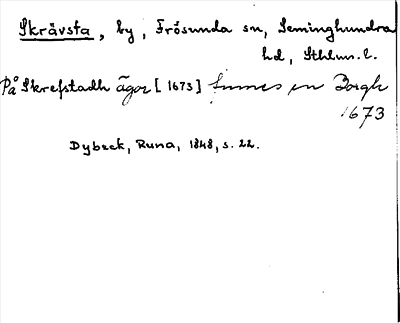 Skrävsta, by, Frösunda sn, Seminghundra
hd, Sthlms. l.
På Skrefstadh ägor [1673] finnes en Borgh
1673
Dybeck, Runa, 1848, s. 22.